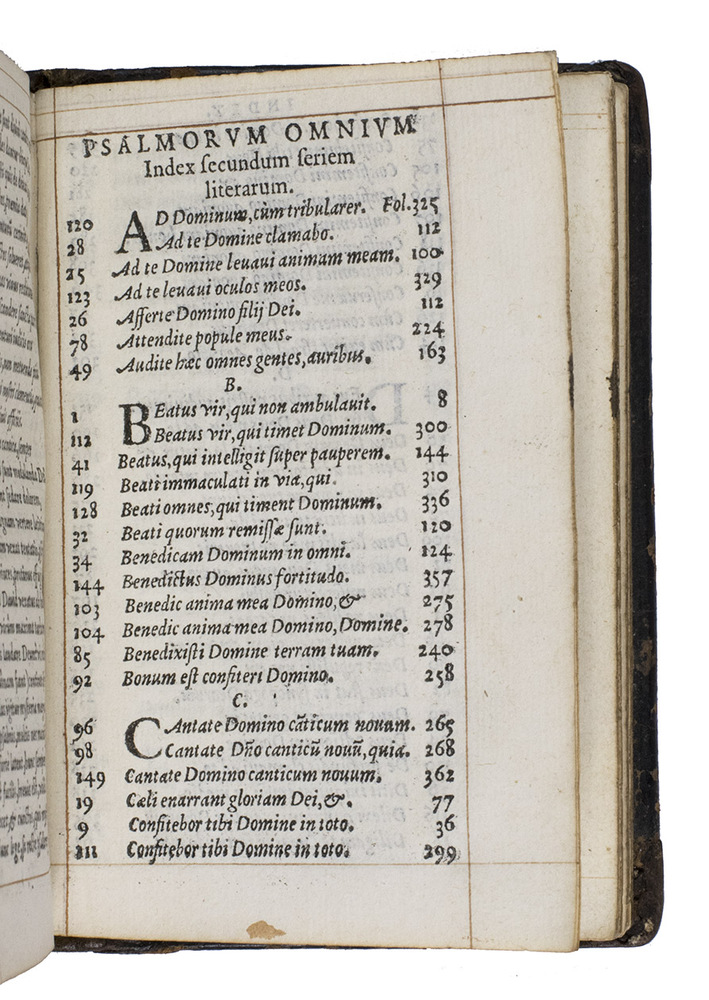 PSALMORVM OMNIVM
Index secundum seriem
literarum.
120 AD Dominum, cùm tribularer. Fol. 325
28 Ad te Domine clamabo. 112
25 Ad te Domine leuaui animam meam. 100
123 Ad te leuaui oculos meos. 329
26 Afferte Domino filij Dei. 112
78 Attendite popule meus. 224
49 Audite hæc omnes gentes, auribus. 163
B.
1 BEatus vir, qui non ambulauit. 8
112 Beatus vir, qui timet Dominum. 300
41 Beatus, qui intelligit super pauperem. 144
119 Beati immaculati in via, qui. 310
128 Beati omnes, qui timent Dominum. 336
32 Beati quorum remissæ sunt. 120
34 Benedicam Dominum in omni. 124
144 Benedictus Dominus fortitudo. 357
103 Benedic anima mea Domino, & 275
104 Benedic anima mea Domino, Domine. 278
85 Benedixisti Domine terram tuam. 240
92 Bonum est confiteri Domino. 258
C.
96 CAntate Domino cãticum nouum. 265
98 Cantate Dño canticũ nouũ, quia. 268
149 Cantate Domino canticum nouum. 362
19 Cæli enarrant gloriam Dei, &. 77
9 Confitebor tibi Domine in toto. 36
111 Confitebor tibi Domine in toto. 299